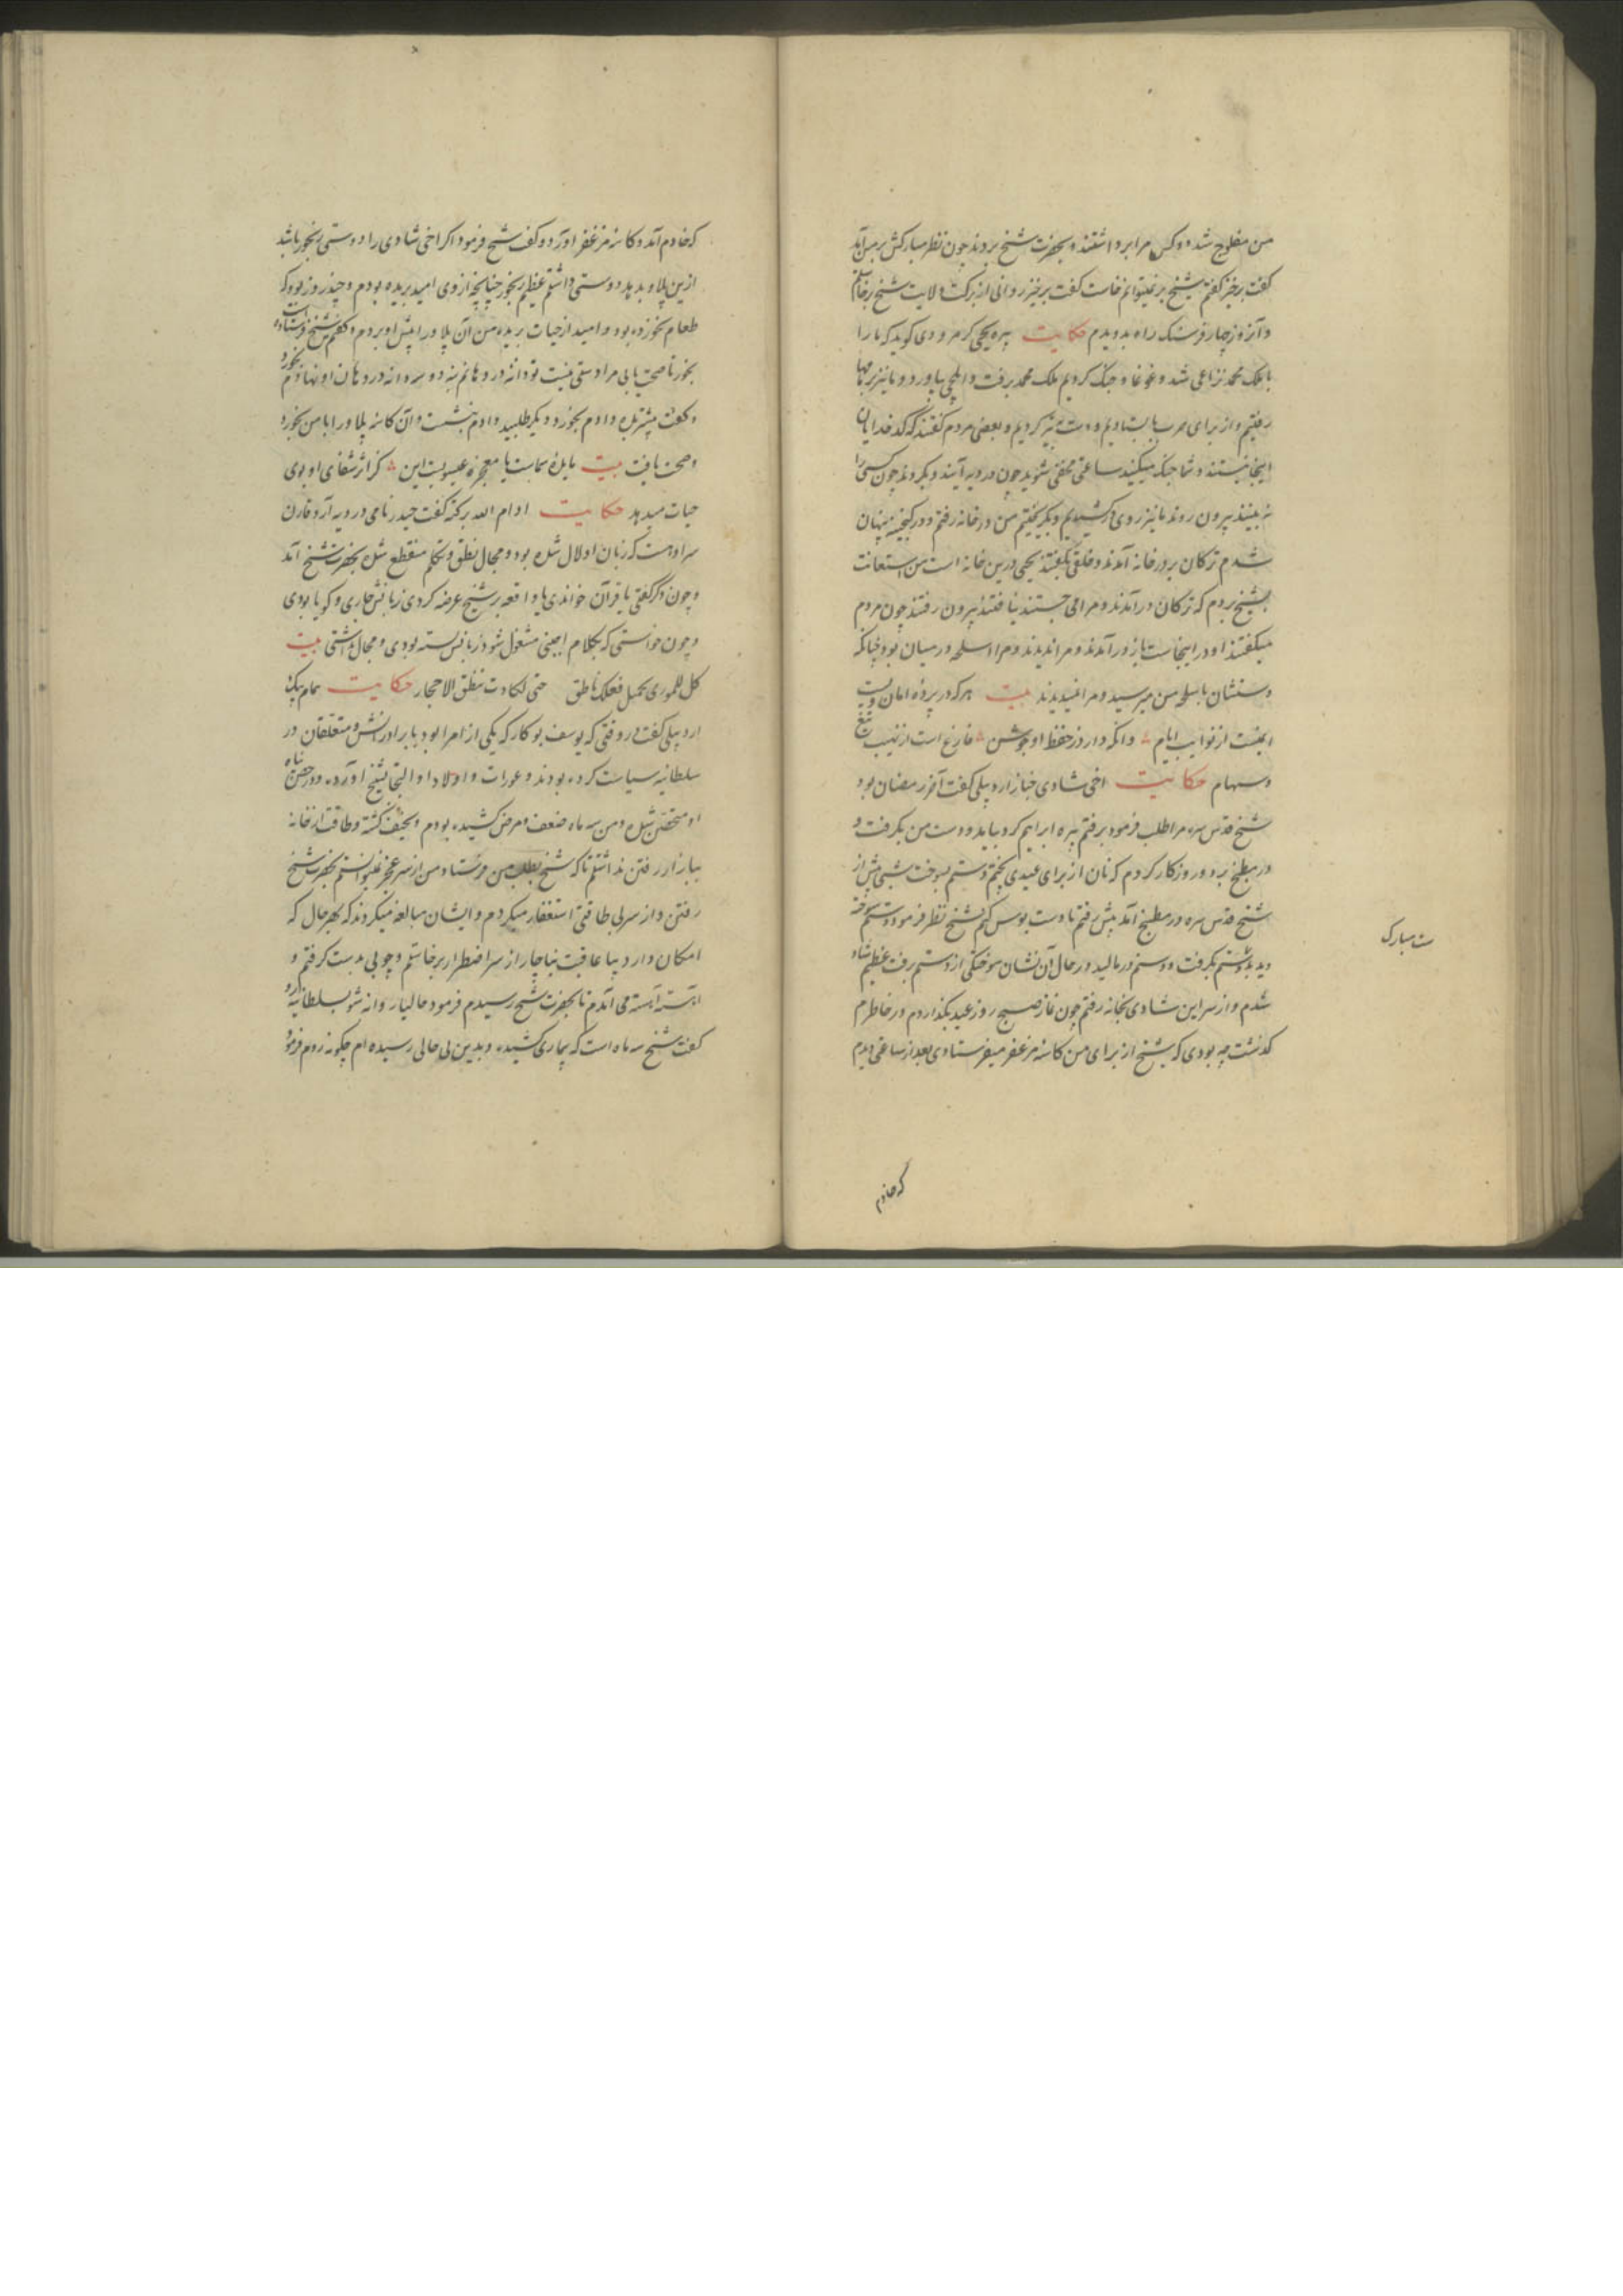 من مفلوج شد دو کس مرا برداشتند و بحضرت شیخ بردند چون نظر مبارکش بر من آمد
کفت برخیز کفتم شیخ بر نمیتوانم خاست کفت برخیز روانی از برکت ولایت شیخ برخاستم
و آنروز چهار فرسنک راه بدویدم حکایت پیره یحیی کرمرودی کوید که ما را
با ملک محمد نزاعی شد و غوغا و جنک کردیم ملک محمد برفت و ایلچی بیاورد و ما نیز بر بامها
رفتیم و از برای حرب بایستادیم و دست تیر کردیم و بعضی مردم کفتند که کدخدایان
اینجا نیستند و شما جنک میکنید ساعتی مخفی شوید چون در دیه آیند و بکردند چون کسی را
نه بینند بیرون روند ما نیز روی درکشیدیم و بکریختیم من در خانه رفتم و در کنجینه پنهان
شدم ترکان بر در خانه آمدند و خلقی بکفتند یحیی درین خانه است من استعانت
بشیخ بردم که ترکان درآمدند و مرا می جستند نیافتند بیرون رفتند چون مردم
میکفتند او در اینجاست باز درآمدند و مرا ندیدند و مرا اسلحه در میان بود چنانکه
دستشان باسلحه من میرسید و مرا نمیدیدند بیت هرکه در پرده امان ویست
ایمنست از نوایب ایام وانکه دارد ز حفظ او جوشن فارغ است از نهیب تیغ
و سهام حکایت اخی شادی خباز اردبیلی کفت آخر رمضان بود
شیخ قدس سره مرا طلب فرمود برفتم پیره ابراهیم کرد بیامد و دست من بکرفت و
در مطبخ برد و روز کار کردم که نان از برای عیدی پختم و دستم بسوخت شبی پیش از
شیخ قدس سره در مطبخ آمد پیش رفتم تا دست بوس کنم شیخ نظر فرمود و دستم سوخته
دید بدستم بکرفت و دستم در مالید در حال آن نشان سوختکی از دستم رفت عظیم شاد
شدم و از سر این شادی بخانه رفتم چون نماز صبح روز عید بکذاردم در خاطرم
کذشت چه بودی که شیخ از برای من کاسه مزعفر میفرستادی بعد از ساعتی دیدم
ست مبارک
که خادم
که خادم آمد و کاسه مزعفر آورد و کفت شیخ فرمود اکر اخی شادی را دوستی رنجور باشد
ازین پلاو بدهد دوستی داشتم عظیم رنجور چنانچه از وی امید بریده بودم و چند روز بود که
طعام نخورده بود و امید از حیات بریده من آن پلاو را پیش او بردم و کفتم شیخ فرستاده است
بخور تا صحت یابی مرا دستی نیست تو دانه در دهانم نه دو سه دانه در دهان او نهادم بخورد
و کفت بیشتر بده دادم بخورد و دیکر طلبید دادم بنشست و آن کاسه پلاو را با من بخورد
و صحت یافت بیت مایده سماست یا معجزه عیسویست این کز اثر شفای او بوی
حیات میدهد حکایت ادام الله برکته کفت حیدر نامی در دیه آردفارن
سراوست که زبان او لال شده بود و مجال نطق و تکلم منقطع شده بحضرت شیخ آمد
و چون ذکر کفتی یا قرآن خواندی یا واقعه بر شیخ عرضه کردی زبانش جاری و کویا بودی
و چون خواستی که بکلام اجنبی مشغول شود زبانش بسته بودی و مجال نداشتی بیت
کل الموری بجمیل فعلک ناطق حتی لکادت تنطق الاحجار حکایت
اردبیلی کفت در وقتی که یوسف بوکار که یکی از امرا بود با برادرانش و متعلقان در
سلطانیه سیاست کرده بودند و عورات و اولاد او التجا بشیخ آورده و در حصن پناه
او متحصن شده و من سه ماه ضعف و مرض کشیده بودم و نحیف کشته و طاقت از خانه
ببازار رفتن نداشتم تا که شیخ بطلب من فرستاد و من از سر عجز نمیتوانستم بحضرت شیخ
رفتن و از سر بی طاقتی استغفار میکردم و ایشان مبالغه میکردند که بهر حال که
امکان دارد بیا عاقبت بناچار از سر اضطرار برخاستم و چوبی بدست کرفتم و
آهسته آهسته می آمدم تا بحضرت شیخ رسیدم فرمود حالیا روانه شو بسلطانیه رو
کفتم شیخ سه ماه است که بیماری کشیده و بدین بی حالی رسیده ام چکونه روم فرمود